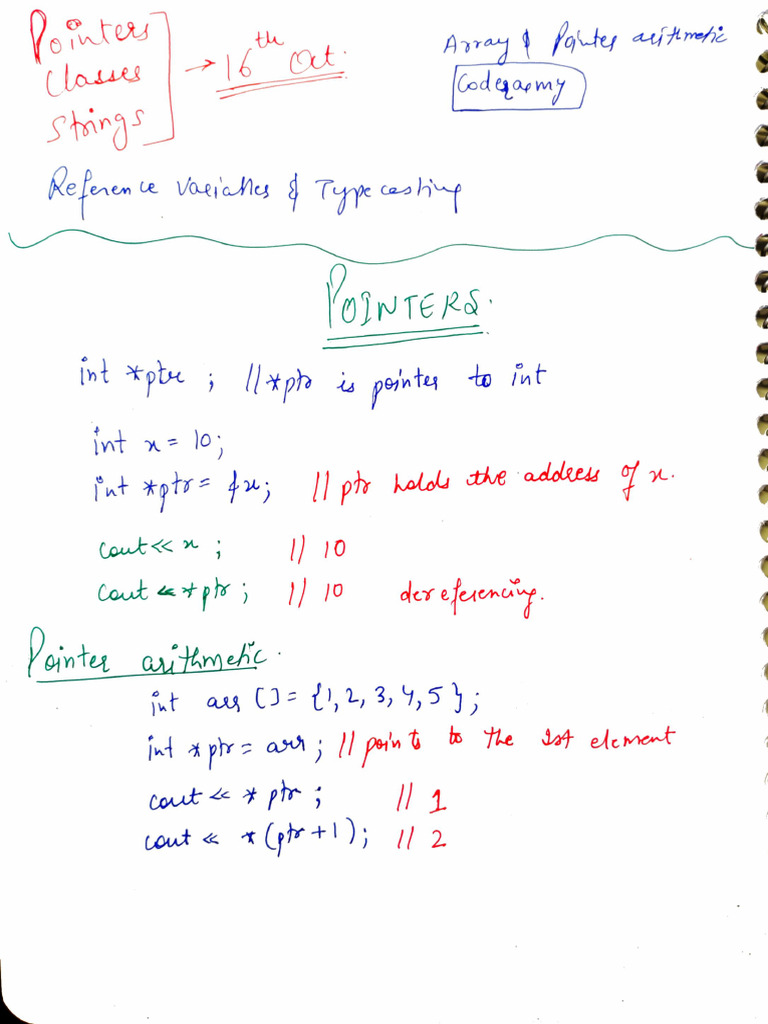 Pointers
Classes
Strings
→ 16th Oct.
Array & Pointer arithmetic
Codequemy
Reference Variables & Typecasting
POINTERS.
int *ptr ; //*ptr is pointer to int
int x = 10;
int *ptr = &x; // ptr holds the address of x.
cout<< x ; // 10
cout<< *ptr ; // 10 dereferencing.
Pointer arithmetic.
int arr [] = {1, 2, 3, 4, 5 };
int *ptr = arr ; // points to the 1st element
cout << * ptr ; // 1
cout << *(ptr+1); // 2